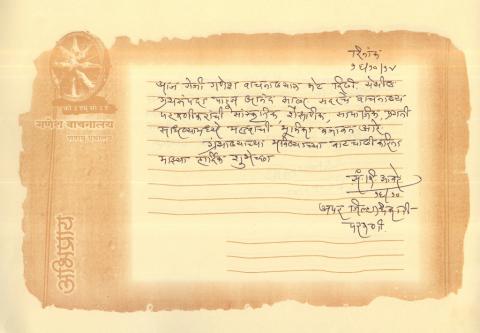 दिनांक
१६/१०/१४
आज रोजी गणेश वाचनालयास भेट दिली. येथील
ग्रंथसंपदा पाहून आनंद झाला. सदरचे वाचनालय
परभणीकरांची सांस्कृतिक, शैक्षणिक, सामाजिक, प्रगती
साधण्यामध्ये महत्वाची भूमिका बजावत आहे.
ग्रंथालयाच्या भविष्याच्या वाटचालीकरिता
माझ्या हार्दिक शुभेच्छा
१६/१०
अपर जिल्हाधिकारी
परभणी.
गणेश वाचनालय
अभिप्राय